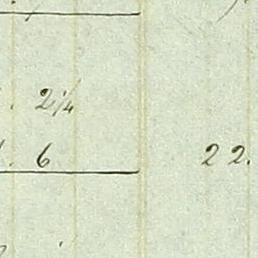 2 1/4
6 22.